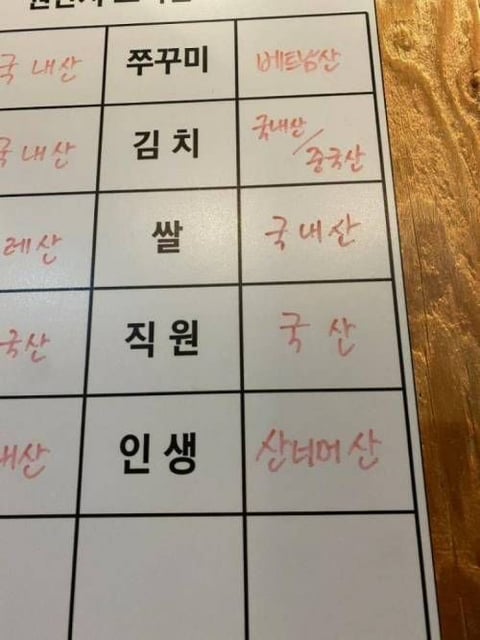 국내산 쭈꾸미 베트남산
국내산 김치 국내산/중국산
쌀 국내산
국산 직원 국산
내산 인생 산너머산